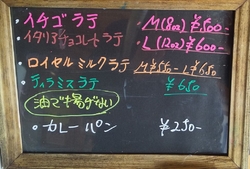 ・イチゴラテ M(8oz) ¥500-
イタリアンチョコレートラテ L(12oz) ¥600-
・ロイヤルミルクラテ M ¥550- L ¥650
・ティラミスラテ ¥650
油で揚げない
・カレーパン ¥250-